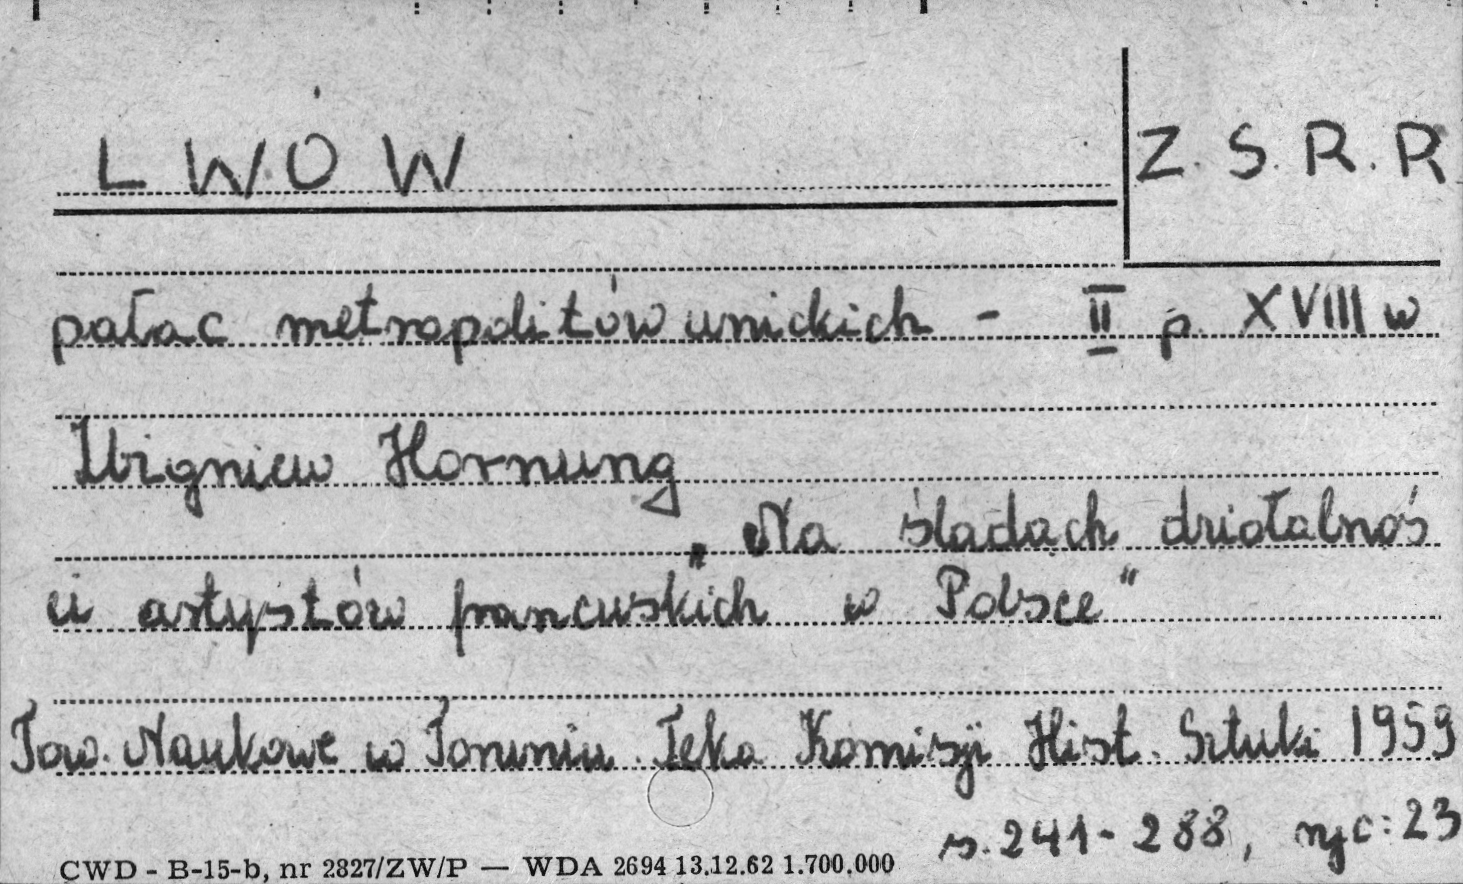 LWÓW
Z.S.R.R
pałac metropolitów unickich - II p. XVIII w
Zbigniew Hornung
„Na śladach działalnoś
ci artystów francuskich w Polsce"
Tow. Naukowe w Toruniu. Teka Komisji Hist. Sztuki 1959
s. 241-288, ryc: 23
CWD - B-15-b, nr 2827/ZW/P — WDA 2694 13.12.62 1.700.000